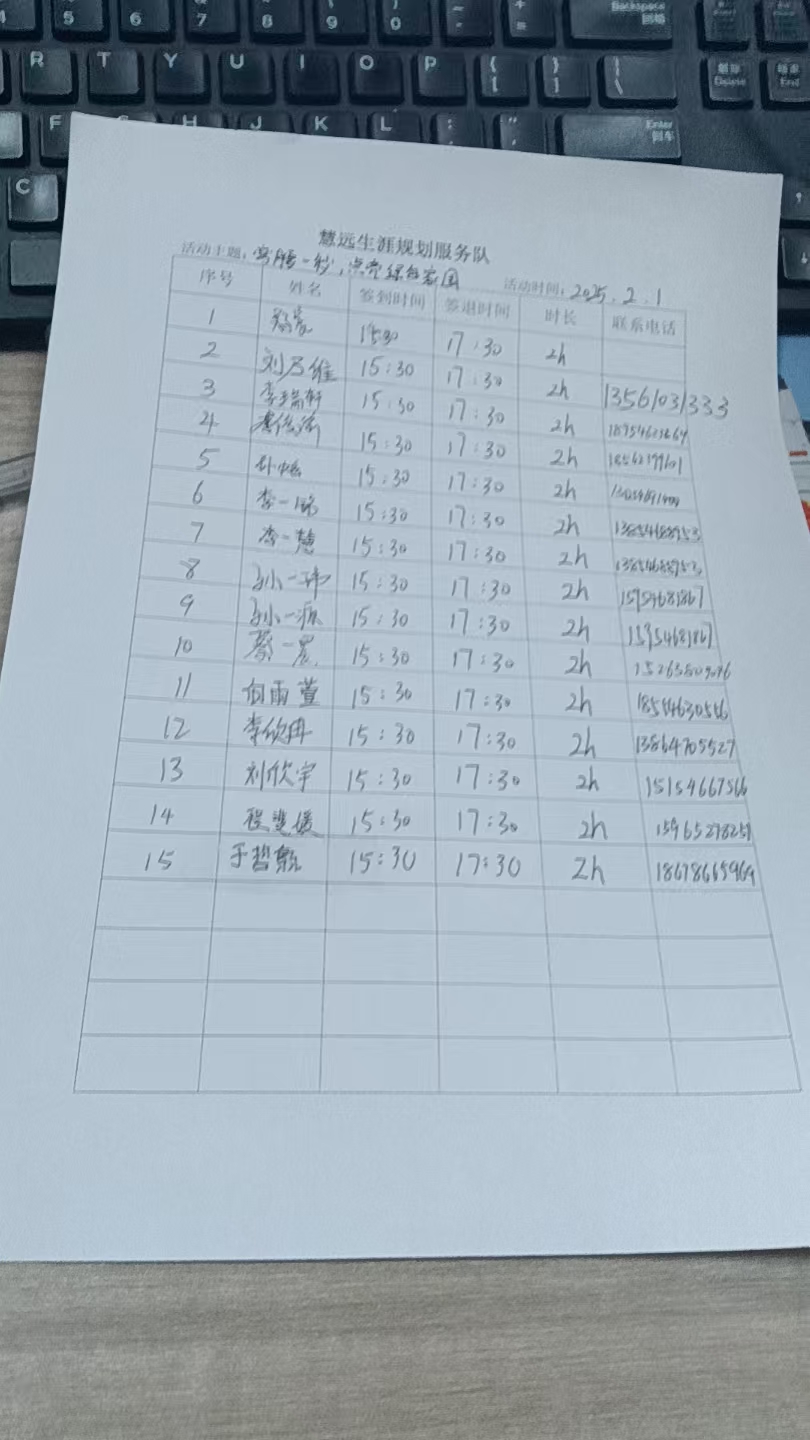 4 5 6 7 8 9 0 Backspace 回格
R T Y U I O P { [ } ] | \ Delete End
F H J K L : ; " ' Enter 回车
C
慧远生涯规划服务队
活动主题：弯腰一秒，点亮绿色家园 活动时间：2025.2.1
序号 姓名 签到时间 签退时间 时长 联系电话
1 15:30 17:30 2h
2 刘乃维 15:30 17:30 2h 13561031333
3 李瑞轩 15:30 17:30 2h
4 15:30 17:30 2h
5 15:30 17:30 2h
6 李一铭 15:30 17:30 2h 13854688953
7 李一慧 15:30 17:30 2h 13854688953
8 孙一玮 15:30 17:30 2h 15954681867
9 孙一源 15:30 17:30 2h 15954681867
10 蔡一晨 15:30 17:30 2h
11 何雨萱 15:30 17:30 2h
12 李欣冉 15:30 17:30 2h 13864705527
13 刘欣宇 15:30 17:30 2h 15154667566
14 程雯媛 15:30 17:30 2h 15965278251
15 于哲甄 15:30 17:30 2h 18678665969